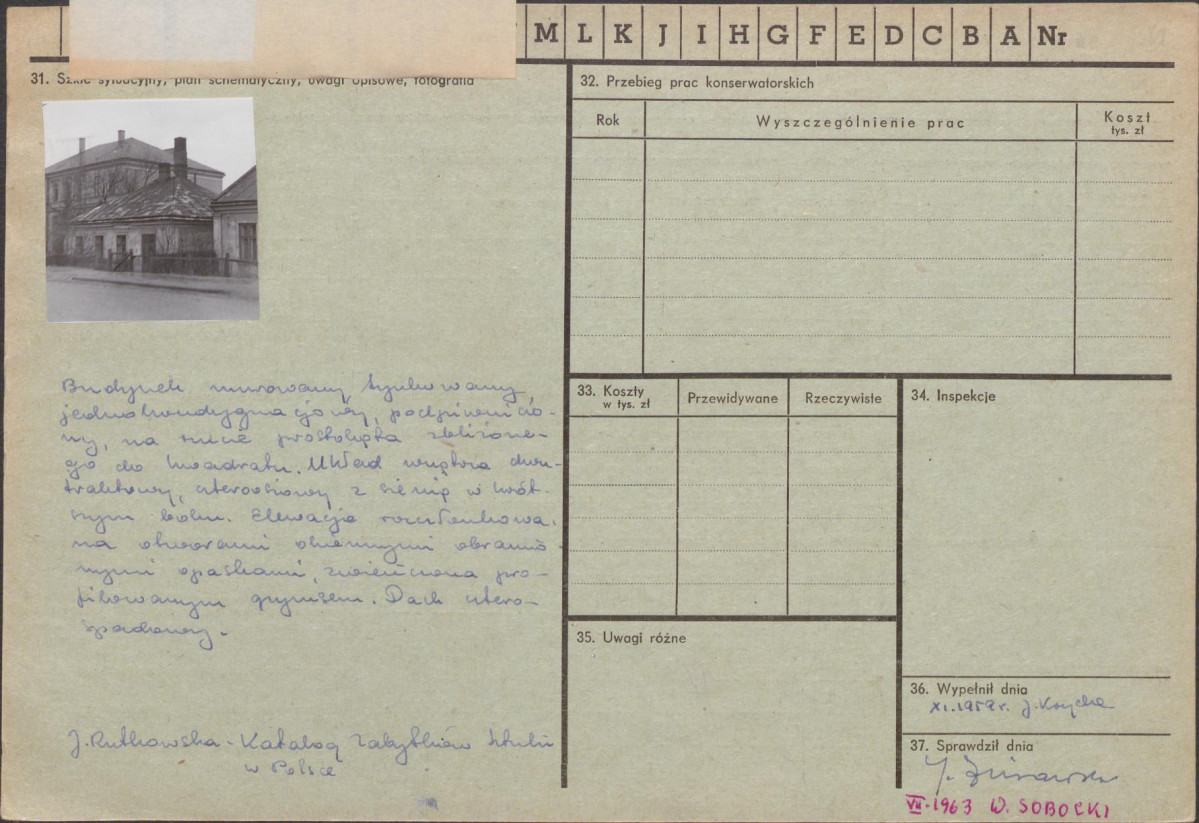 M L K J I H G F E D C B A Nr
31. Szkic sytuacyjny, plan schematyczny, uwagi opisowe, fotografia
Budynek murowany, tynkowany,
jednokondygnacjowy, podpiwniczo-
ny, na rzucie prostokąta zbliżone-
go do kwadratu. Układ wnętrza dwu-
traktowy, czteroosiowy z sienią w krót-
szym boku. Elewacja rozczłonkowa-
na otworami okiennymi obramio-
nymi opaskami, zwieńczona pro-
filowanym gzymsem. Dach cztero-
spadowy.
J. Rutkowska - Katalog Zabytków Sztuki
w Polsce
32. Przebieg prac konserwatorskich
Rok
Wyszczególnienie prac
Koszt
tys. zł
33. Koszty
w tys. zł
Przewidywane
Rzeczywiste
34. Inspekcje
35. Uwagi różne
36. Wypełnił dnia
XI.1959r. J.
37. Sprawdził dnia
VII-1963 W. SOBOCKI